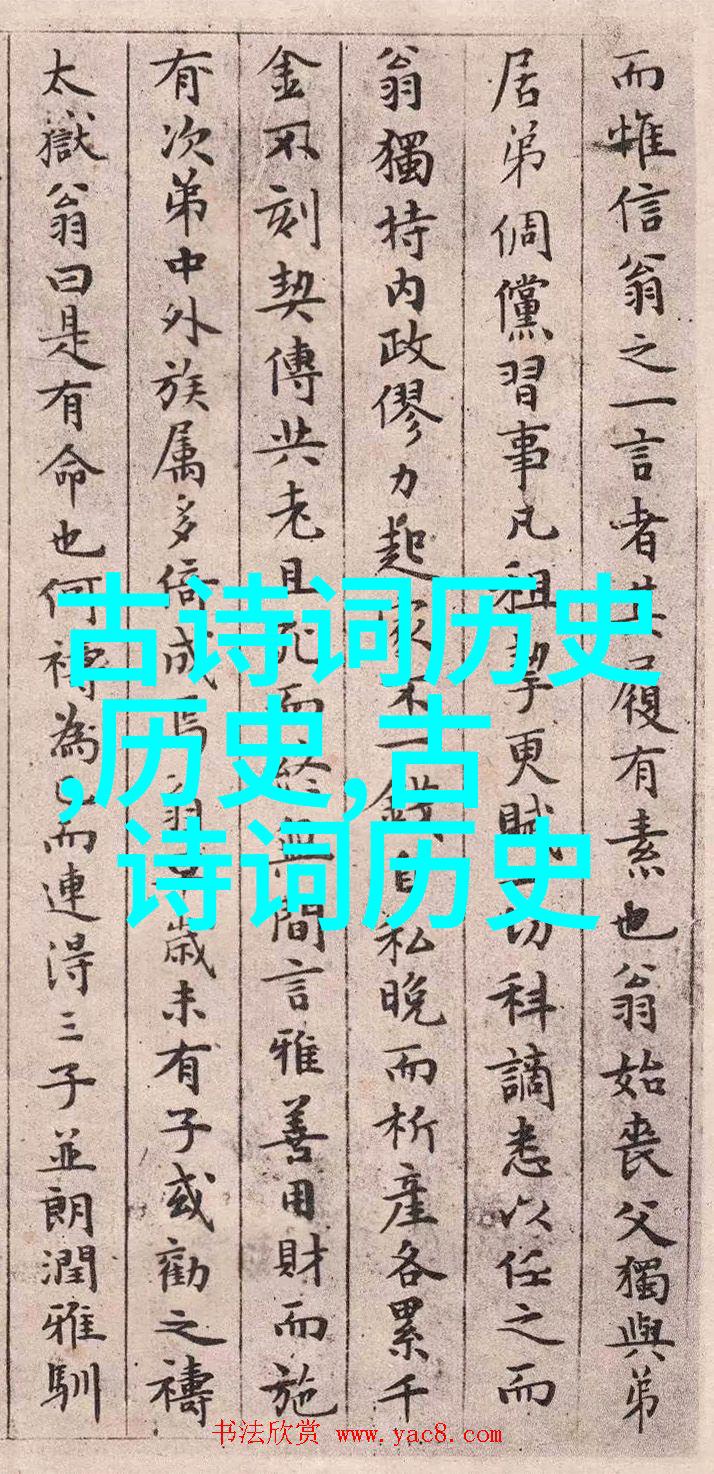 而惟信翁之一言者其履有素也翁始喪父獨與弟
居弟倜儻習事凡租挈更賦一切科讁悉以任之而
翁獨持内政僇力起家不一錢自私晚而析產各累千
金不刻契傳共老且死而終無間言雅善用財而施
有次弟中外族属多倚成焉翁中歲未有子或勸之禱
太嶽翁曰是有命也何禱為已而連得三子並朗潤雅馴
古诗词历史
,历史,古
诗词历史
书法欣赏 www.yac8.com